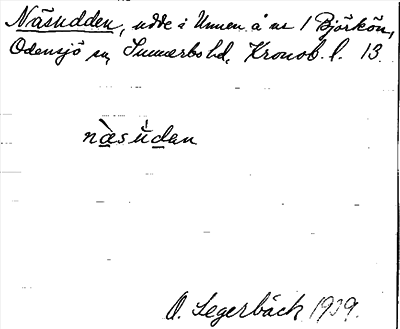 Näsudden, udde i Unnen å nr 1 Björkön,
Odensjö sn, Sunnerbo hd, Kronob. l. 13.
næ̀s ùdan
O. Segerbäck 1939.